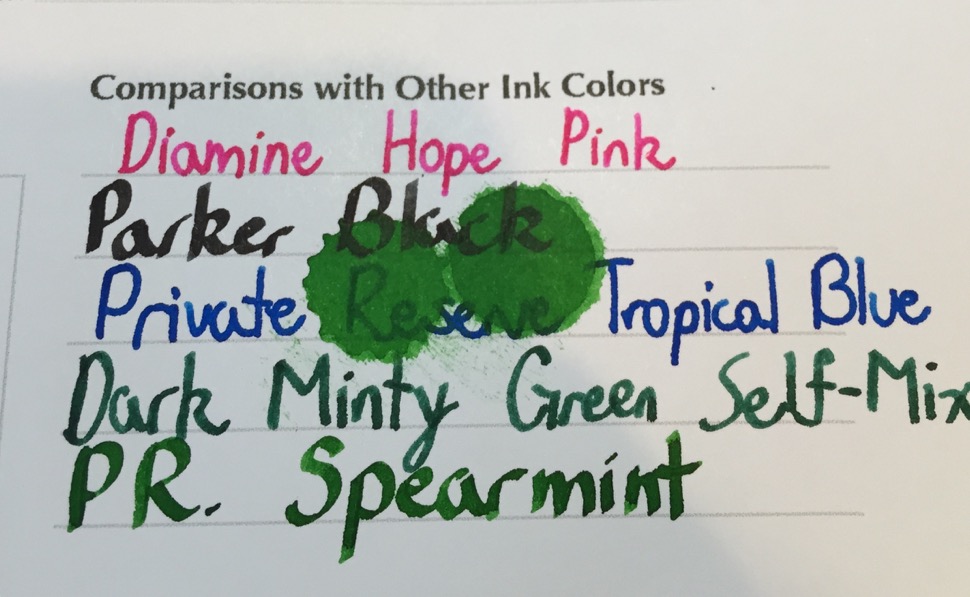 Comparisons with Other Ink Colors
Diamine Hope Pink
Parker Black
Private Reserve Tropical Blue
Dark Minty Green Self-Mix
PR. Spearmint